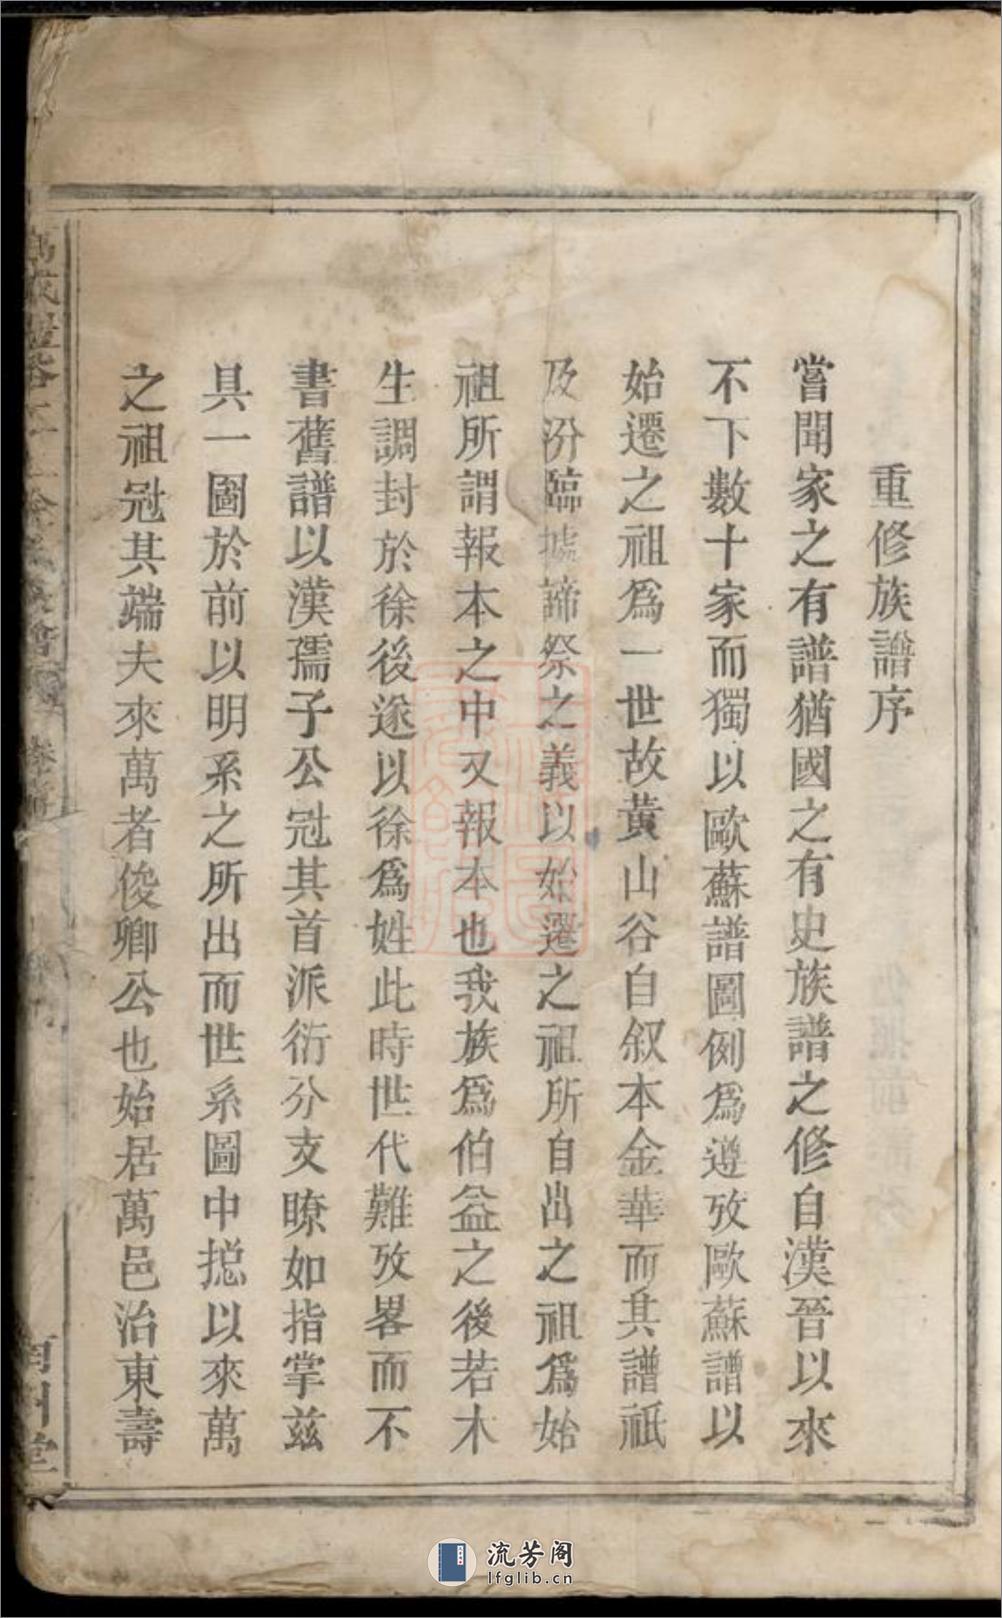 重修族譜序
嘗聞家之有譜猶國之有史族譜之修自漢晉以來
不下數十家而獨以歐蘇譜圖例爲遵攷歐蘇譜以
始遷之祖爲一世故黃山谷自叙本金華而其譜祇
及汾臨據諦祭之義以始遷之祖所自出之祖爲始
祖所謂報本之中又報本也我族爲伯益之後若木
生調封於徐後遂以徐爲姓此時世代難攷畧而不
書舊譜以漢孺子公冠其首派衍分支瞭如指掌兹
具一圖於前以明系之所出而世系圖中摠以來萬
之祖冠其端夫來萬者俊卿公也始居萬邑治東壽
南州堂
流芳阁
lfglib.cn